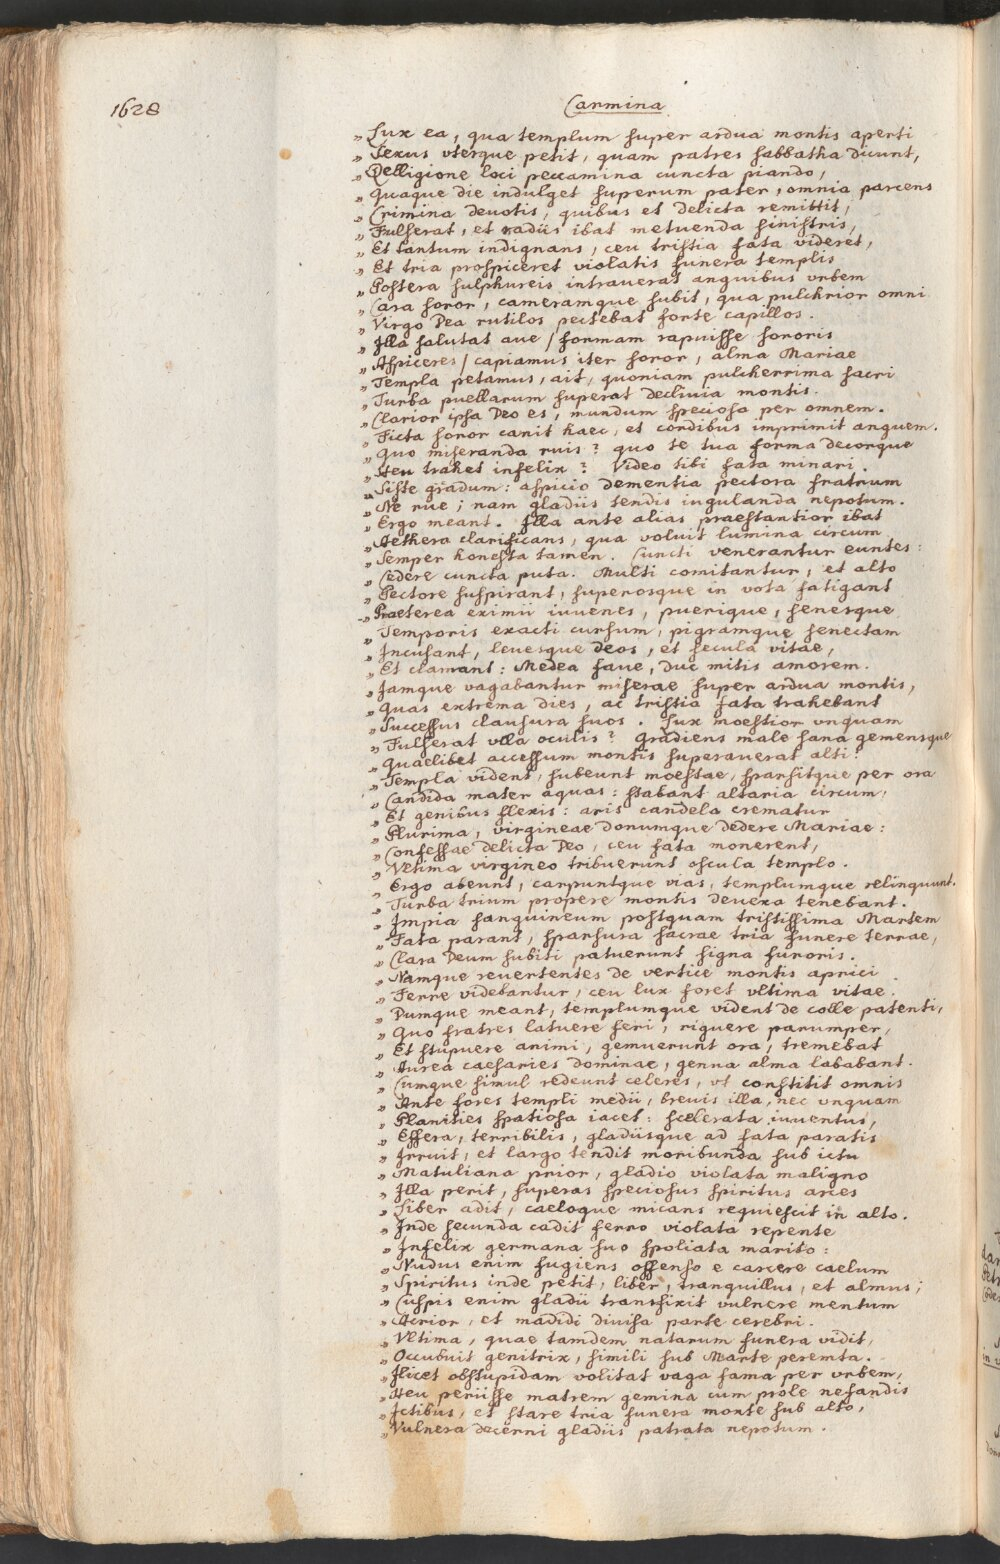 1628
Carmina
„ Lux ea, qua templum super ardua montis aperti
„ Sexus vterque petit, quam patres sabbatha dicunt,
„ Relligione loci peccamina cuncta piando,
„ Quaque die indulget superum pater, omnia parcens
„ Crimina deuotis, quibus et delicta remittit,
„ Fulserat, et radiis ibat metuenda sinistris,
„ Et tantum indignans, ceu tristia fata videret,
„ Et tria prospiceret violatis funera templis
„ Postera sulphureis intrauerat anguibus vrbem
„ Cara soror, cameramque subit, qua pulchrior omni
„ Virgo Dea rutilos pectebat forte capillos.
„ Illa salutat aue / formam rapuisse sororis
„ Aspiceres / capiamus iter soror, alma Mariae
„ Templa petamus, ait, quoniam pulcherrima sacri
„ Turba puellarum superat decliuia montis.
„ Clarior ipsa Deo es, mundum speciosa per omnem.
„ Ficta soror canit haec, et cordibus imprimit anguem.
„ Quo miseranda ruis? quo te tua forma decorque
„ Heu trahet infelix? Video tibi fata minari.
„ Siste gradum: aspicio dementia pectora fratrum
„ Ne rue; nam gladiis tendis iugulanda nepotum.
„ Ergo meant. Illa ante alias praestantior ibat
„ Aethera clarificans, qua voluit lumina circum
„ Semper honesta tamen. Cuncti venerantur euntes:
„ Cedere cuncta puta. Multi comitantur, et alto
„ Pectore suspirant, superosque in vota fatigant
„ Praeterea eximii iuuenes, puerique, senesque
„ Temporis exacti cursum, pigramque senectam
„ Incusant, leuesque deos, et secula vitae,
„ Et clamant: Medea faue, duc mitis amorem.
„ Iamque vagabantur miserae super ardua montis,
„ Quas extrema dies, ac tristia fata trahebant
„ Successus clausura suos. Lux moestior vnquam
„ Fulserat vlla oculis? gradiens male sana gemensque
„ Quaelibet accessum montis superauerat alti.
„ Templa vident, subeunt moestae, sparsitque per ora
„ Candida mater aquas: stabant altaria circum,
„ Et genibus flexis: aris candela crematur
„ Plurima, virgineae donumque dedere Mariae:
„ Confessae delicta Deo, ceu fata monerent,
„ Vltima virgineo tribuerunt oscula templo.
„ Ergo abeunt, carpuntque vias, templumque relinquunt.
„ Turba trium propere montis deuexa tenebant.
„ Impia sanguineum postquam tristissima Martem
„ Fata parant, sparsura sacrae tria funere terrae,
„ Clara Deum subiti patuerunt signa furoris.
„ Namque reuertentes de vertice montis aprici
„ Ferre videbantur, ceu lux foret vltima vitae.
„ Dumque meant, templumque vident de colle patenti,
„ Quo fratres latuere feri, riguere parumper,
„ Et stupuere animi, gemuerunt ora, tremebat
„ Aurea caesaries dominae, genua alma lababant.
„ Cumque simul redeunt celeres, vt constitit omnis
„ Ante fores templi medii, breuis illa, nec vnquam
„ Planities spatiosa iacet: scelerata iuuentus,
„ Effera, terribilis, gladiisque ad fata paratis
„ Irruit, et largo tendit moribunda sub ictu
„ Matuliana prior, gladio violata maligno
„ Illa perit, superas speciosus spiritus arces
„ Liber adit, caeloque micans requiescit in alto.
„ Inde secunda cadit ferro violata repente
„ Infelix germana suo spoliata marito:
„ Nudus enim fugiens offenso e carcere caelum
„ Spiritus inde petit, liber, tranquillus, et almus;
„ Cuspis enim gladii transfixit vulnere mentum
„ Acrior, et madidi diuisa parte cerebri.
„ Vltima, quae tamdem natarum funera vidit,
„ Occubuit genitrix, simili sub Marte peremta.
„ Ilicet obstupidam volitat vaga fama per vrbem,
„ Heu periisse matrem gemina cum prole nefandis
„ Ictibus, et stare tria funera monte sub alto,
„ Vulnera decerni gladiis patrata nepotum.